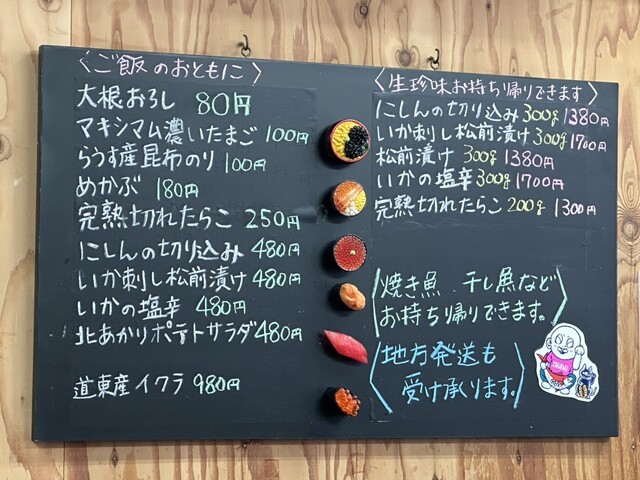 〈ご飯のおともに〉
大根おろし 80円
マキシマム濃いたまご 100円
らうす産昆布のり 100円
めかぶ 180円
完熟切れたらこ 250円
にしんの切り込み 480円
いか刺し松前漬け 480円
いかの塩辛 480円
北あかりポテトサラダ 480円
道東産イクラ 980円
〈生珍味お持ち帰りできます〉
にしんの切り込み 300g 1380円
いか刺し松前漬け 300g 1700円
松前漬け 300g 1380円
いかの塩辛 300g 1700円
完熟切れたらこ 200g 1300円
〈焼き魚、干し魚など
お持ち帰りできます。〉
〈地方発送も
受け承ります。〉